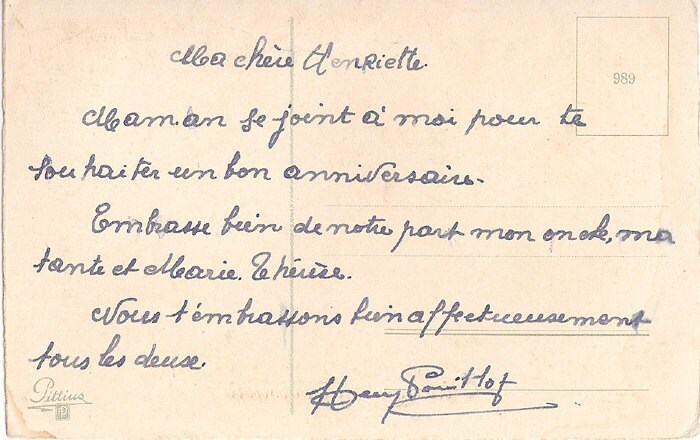 Ma chère Henriette.
989
Maman se joint à moi pour te
souhaiter un bon anniversaire.
Embrasse bien de notre part mon oncle, ma
tante et Marie. Thérèse.
Nous t'embrassons bien affectueusement
tous les deuse.
Pittius